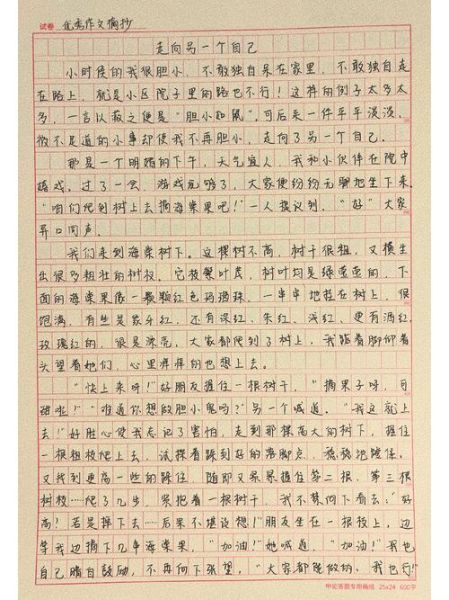 试卷 优秀作文摘抄
走向另一个自己
小时候的我很胆小，不敢独自呆在家里，不敢独自走
在路上，就是小区院子里的路也不行！这样的例子太多太
多，一言以蔽之便是“胆小如鼠”，可后来一件平平淡淡，
微不足道的小事却使我不再胆小，走向了另一个自己。
那是一个明媚的下午，天气宜人，我和小伙伴在院中
嬉戏，过了一会，游戏玩够了，大家便纷纷无聊地坐下来，
“咱们爬到树上去摘海棠果吧！”一人提议到，“好”大家
异口同声。
我们来到海棠树下。这棵树不高，树干很粗，又横生
出很多粗壮的树杈。它枝繁叶茂，树叶均是绿莹莹的，下
面的海棠果像一颗颗红色玛瑙珠，一串串地挂在树上，很
饱满，有些是象牙红，还有深红、朱红、浅红、更有酒红、
玫瑰红的，很是漂亮，大家都爬到了树上，我踮着脚仰着
头望着她们，心里痒痒的也想上去。
“快上来呀！”好朋友握住一根树干，“摘果子呀，
“难道你想做胆小鬼吗？”另一个喊道。“我这就上
去！”好胜心使我忘记了害怕，走到那棵高大的树下，握住
一根粗枝爬上去，试探着踩到好的落脚点，稳稳地踩住。
又找到更高一些的踩住，随即又紧紧握住第二根，第三根
树枝……爬了几步，紧抱着一根树干，我不禁向下看去：“好
高！若是掉下去……后果不堪设想！”朋友坐在一根枝上，边
等我边摘下几串海棠果，“加油！”她喊道，“加油！”我也
自己暗自鼓励，不再向下张望，“大家都能做的，我也行！”
申论答题专用稿纸 25x24 600字